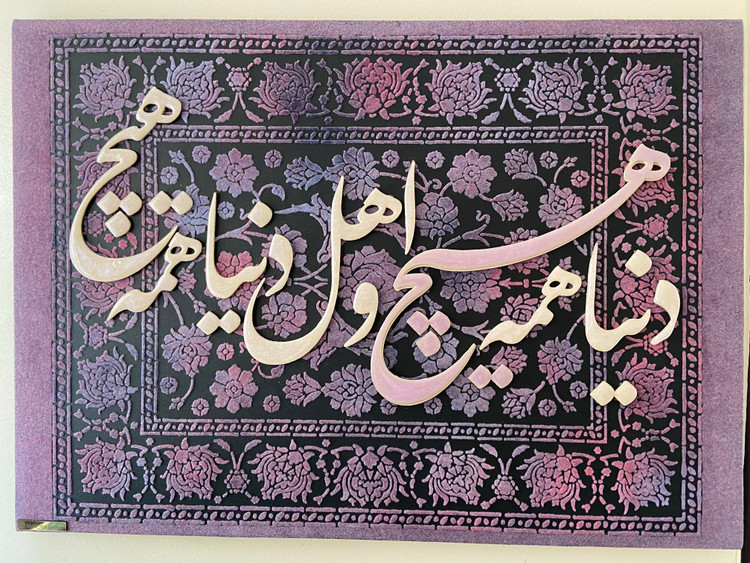 دنیا همه هیچ و اهل دنیا همه هیچ